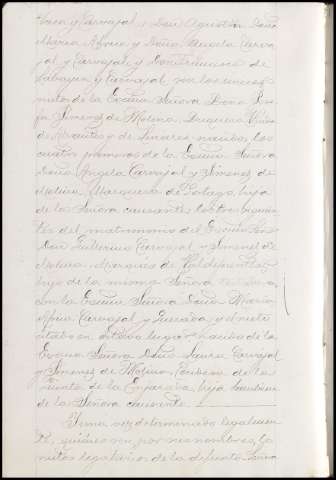 y Carvajal y Don Agustín, Doña
María y Doña Angela Carva
jal y Carvajal, y Don Francisco de
y Carvajal son los únicos
nietos de la Excma Señora Doña
Jimenez de Molina, Duquesa Viuda
de Abrantes y de Linares nacidos los
cuatro primeros de la Excma Señora
Doña Angela Carvajal y Jimenez de
Molina, Marquesa de hija
de la Señora causante, los tres siguien
tes del matrimonio del Excmo Señor
Don Guillermo Carvajal y Jimenez de
Molina, Marqués de
hijo de la misma Señora
con la Excma Señora Doña María
Carvajal y y el nieto
citado en último lugar nacido de la
Excma Señora Doña Carvajal
y Jimenez de Molina, Condesa de la
de la Enjarada, hija también
de la Señora causante.
Y una vez determinado legalmen
te, quienes son, por sus nombres, los
nietos legatarios de la difunta Señora